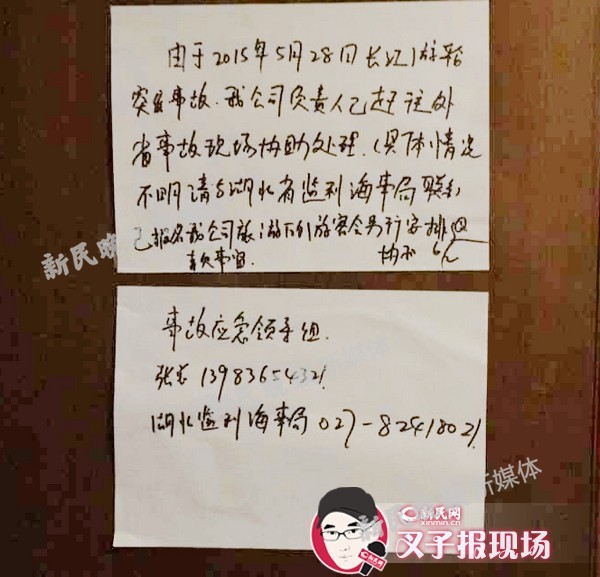 由于2015年5月28日长江游轮
突发事故，我公司负责人已赶往外
省事故现场协助处理。（具体情况
不明请与湖北省监利海事局联系）
已报名我公司旅游
事故应急领导组
张 13983654321
湖北监利海事局 027-82418021
新民晚
新媒体
新民网
xinmin.cn
新民网
叉子报现场